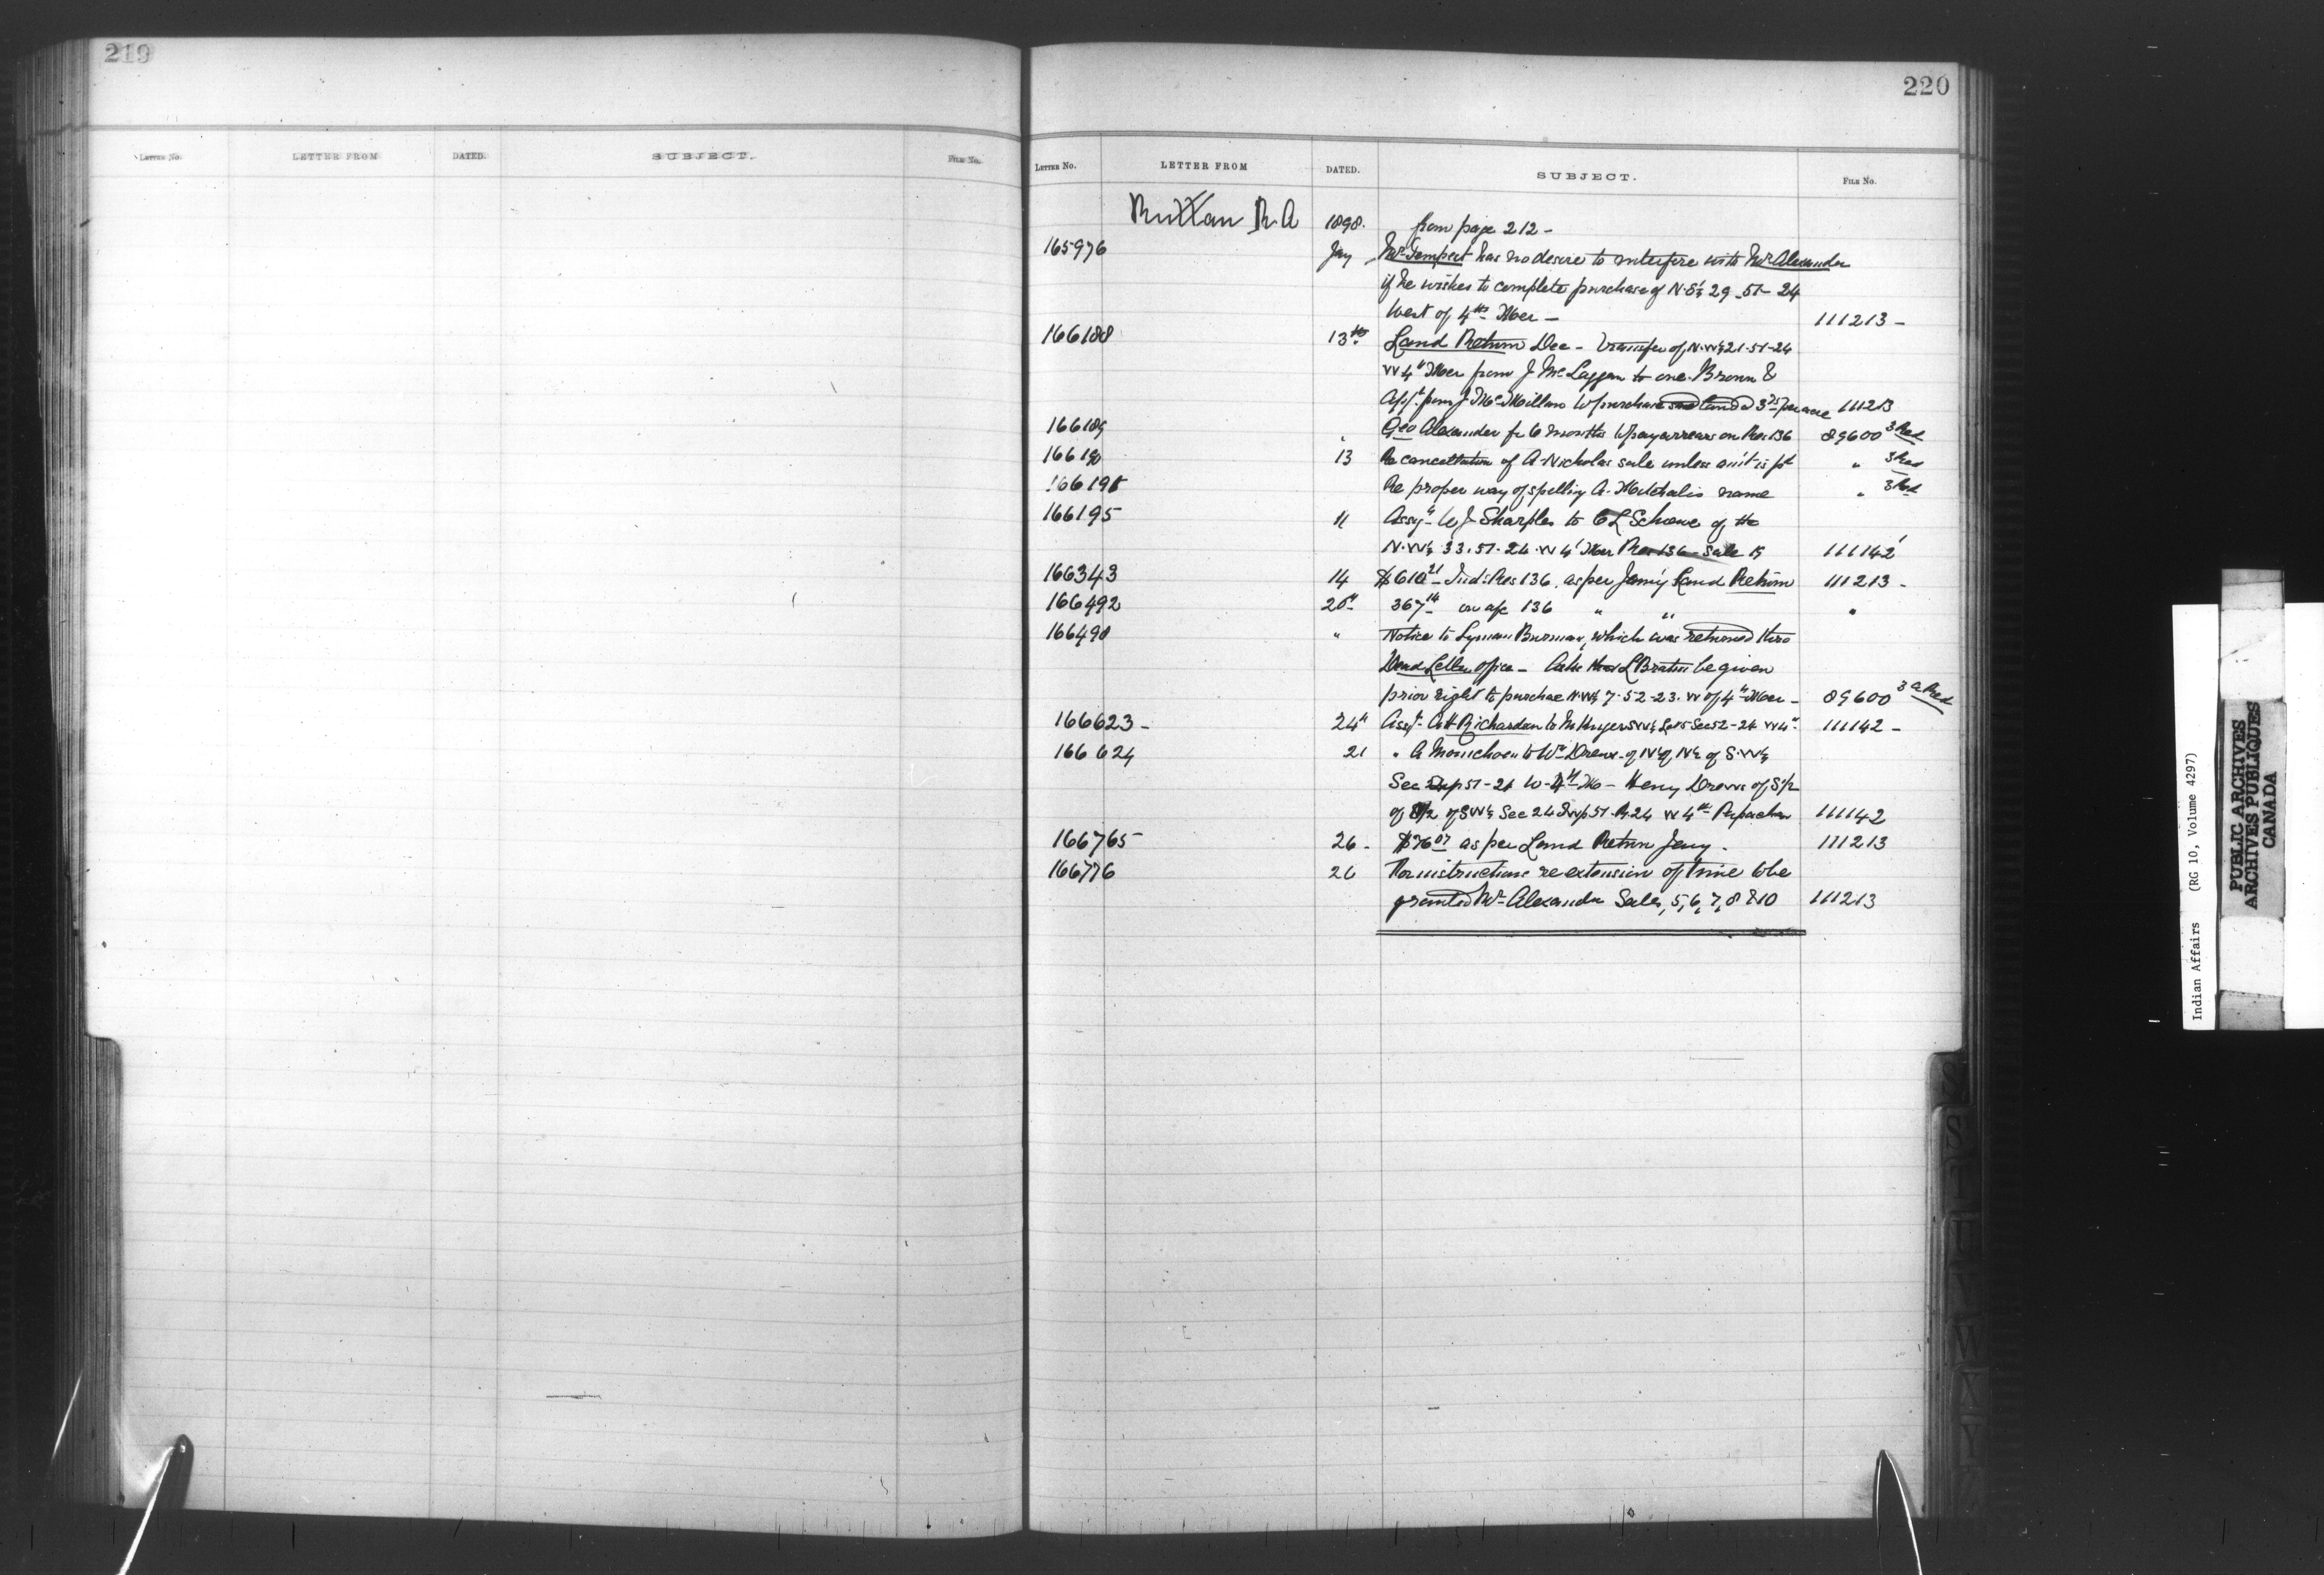 219
LETTER No. LETTER FROM DATED. SUBJECT. FILE No.
220
LETTER No. LETTER FROM DATED. SUBJECT. FILE No.
Ruttan R A 1898. from page 212 -
165976 Jany Mr Tempest has no desire to interfere with Mr Alexander
if he wishes to complete purchase of N.E¼ 29-51-24
West of 4th Mer - 111213 -
166188 13th Land Return Dec - Transfer of N.W¼ 21-51-24
W 4th Mer from J McLaggan to one Brown &
App. from J. McMillan to purchase said land @ 3 per acre 111213
166189 " Geo Alexander for 6 months to pay arrears on Res 136 89600 3 Red
166190 13 Re cancellation of A. Nicholas sale unless am't is pd " 3 Red
16619 Re proper way of spelling A. name " 3 Red
166195 11 Assgt W J Sharples to C L Schowe of the
N.W¼ 33.51.24.W 4 Mer Res 136 - Sale 15 111142
166343 14 $610 21 Ind: Res 136. as per Jany Land Return 111213 -
166492 20th 367 14 on a/c 136 " " "
166490 " Notice to Lyman Burman, which was returned thro
Dead Letter Office - Asks L Braten be given
prior right to purchase N.W¼ 7-52-23. W of 4th Mer - 89600 3 a Red
166623 - 24th Assgt. A H Richardson to S.W¼ Sec 52-24 W 4th 111142 -
166624 21 " A to Wm Drews of N½ of N½ of S.W¼
Sec 51-24 W-4th M - Henry Drews of S½
of of SW¼ Sec 24 Twp 51. R.24 W 4th 111142
166765 26 - $76 07 as per Land Return Jany - 111213
166776 26 For instructions re extension of time to be
granted Mr Alexander Sales, 5, 6, 7, 8 & 10 111213
S
S
T
U
V
W
X
Y
Z
Indian Affairs (RG 10, Volume 4297)
PUBLIC ARCHIVES
ARCHIVES PUBLIQUES
CANADA